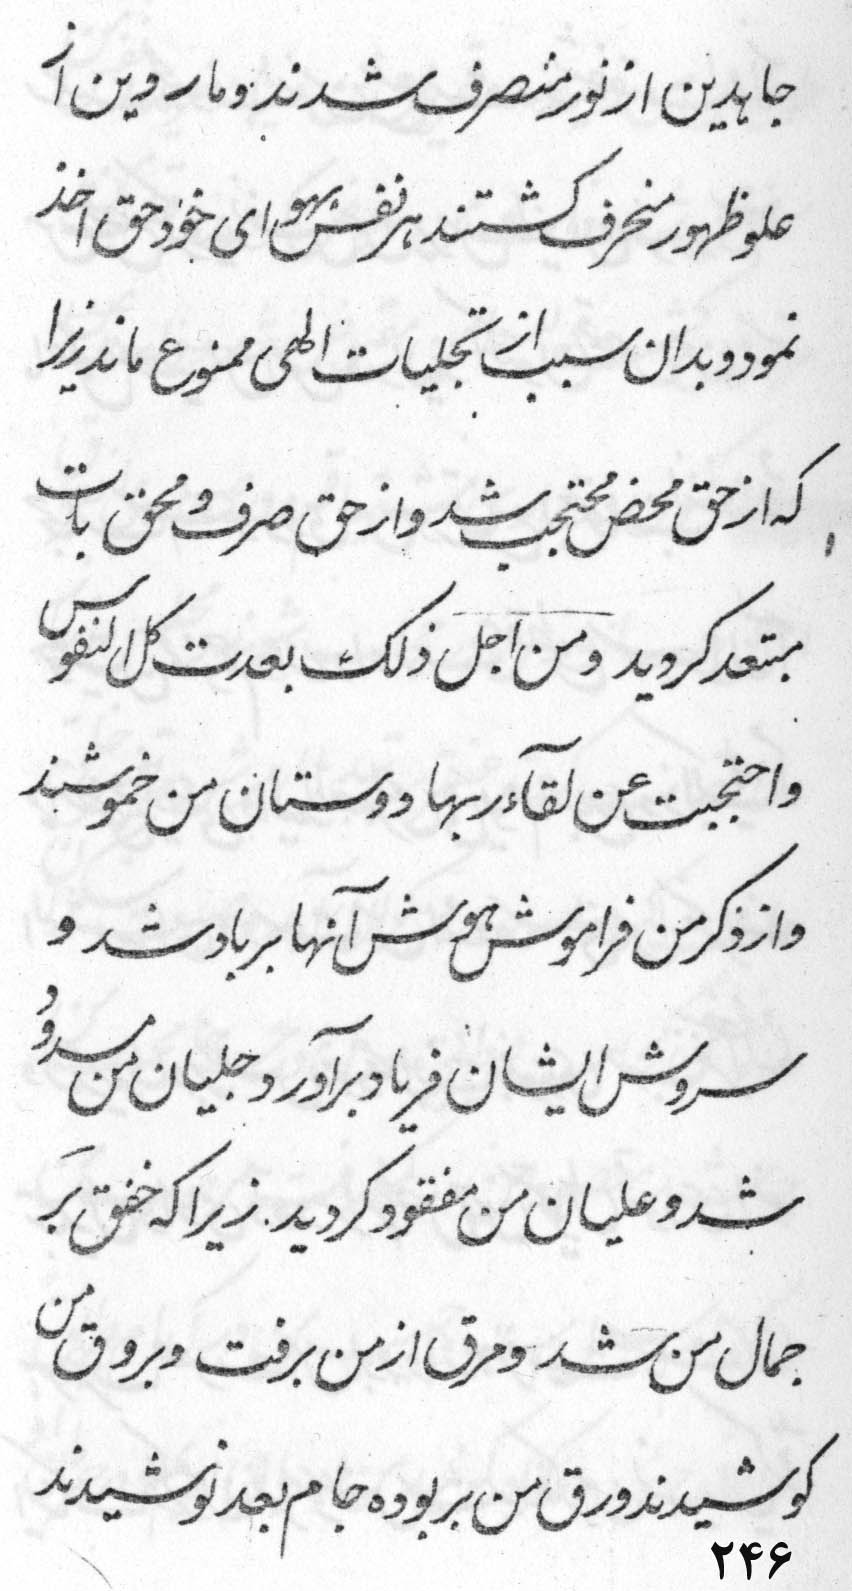 جاهدین از نور منصرف شدند و ماردین از
علو ظهور منحرف کشتند هر نفس بهوای خود حق اخذ
نمود و بدان سبب از تجلیات الهی ممنوع ماند زیرا
که از حق محض محتجب شد و از حق صرف و محق بات
مبتعد کردید و من اجل ذلک بعدت کل النفوس
و احتجبت عن لقآء ربها دوستان من خموشند
و از ذکر من فراموش هوش آنها برباد شد و
سروش ایشان فریاد برآورد جلیان من مسدود
شد و علیان من مفقود کردید. زیرا که خفق بر
جمال من شد و مرق از من برفت و بروق من
کوشیدند ورق من بربوده جام بعد نوشیدند
۲۴۶